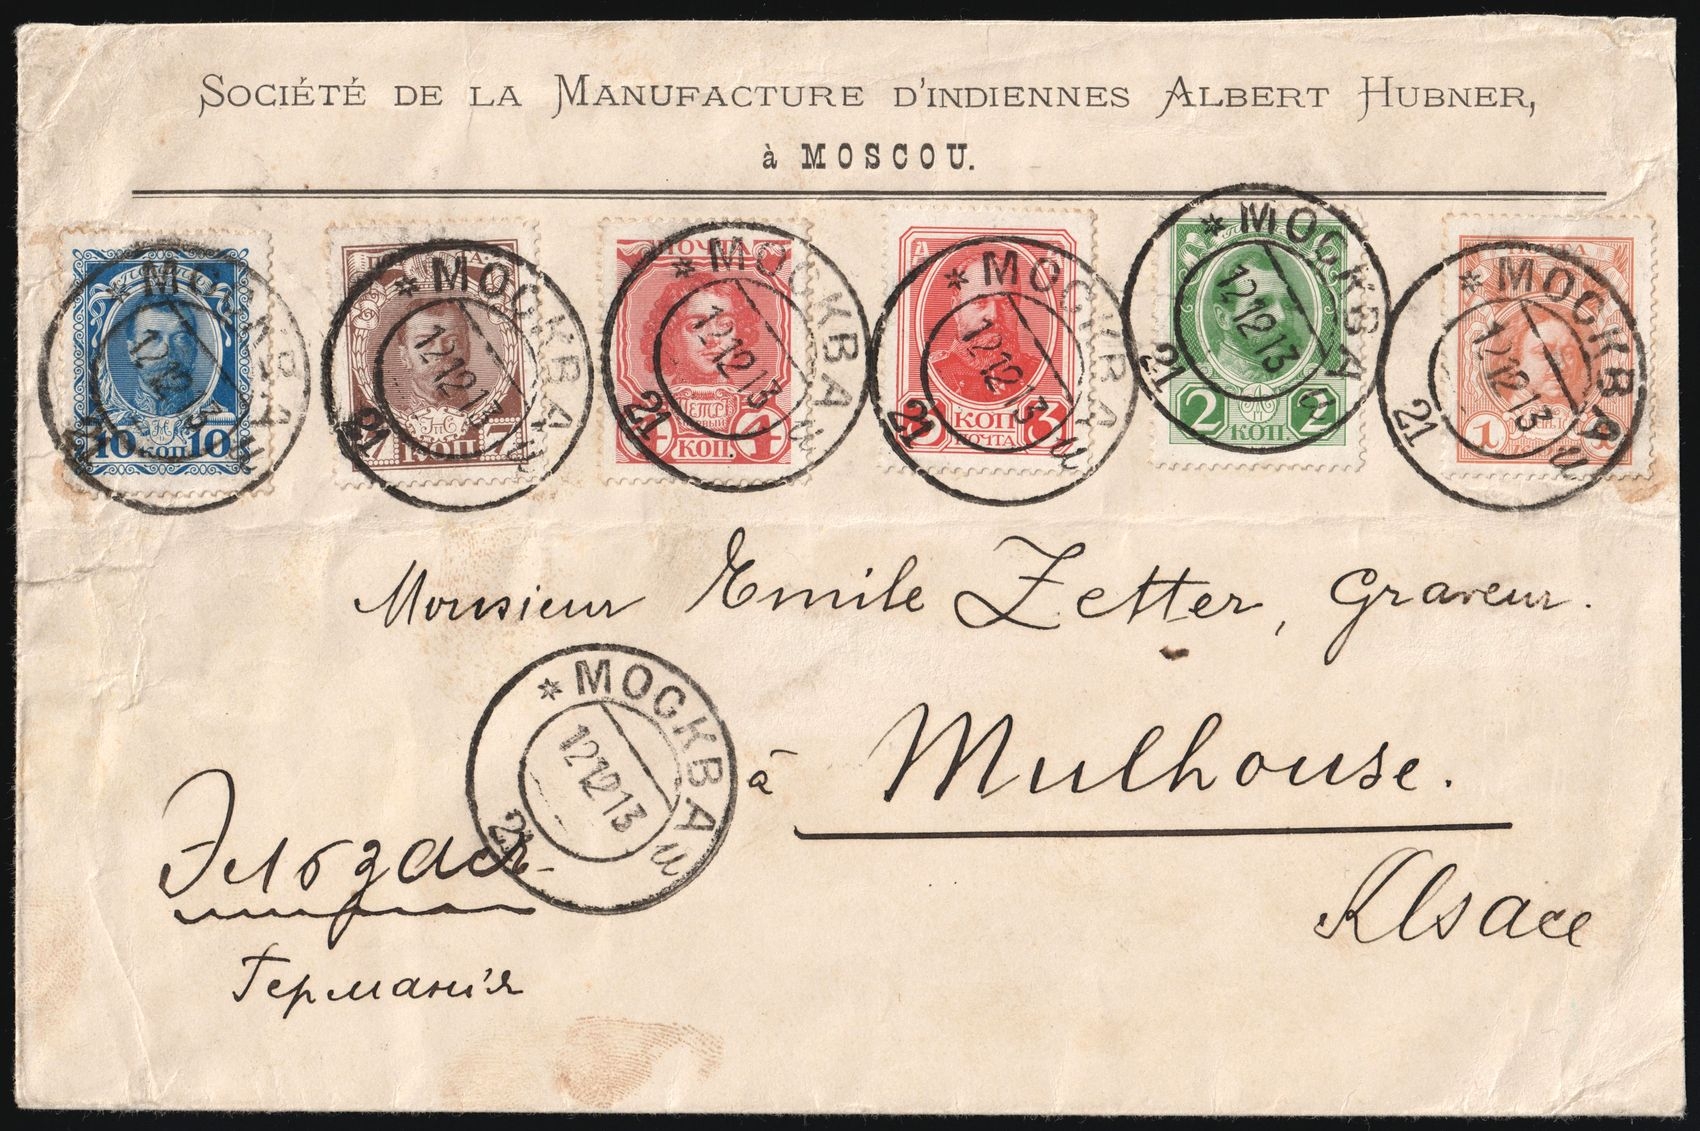 SOCIÉTÉ DE LA MANUFACTURE D'INDIENNES ALBERT HUBNER,
à MOSCOU.
* МОСКВА 12 12 13 21
10 КОП 10
* МОСКВА 12 12 13 21
7 КОП. 7
ПОЧТА
* МОСКВА 12 12 13 21
4 КОП. 4
* МОСКВА 12 12 13 21
3 КОП 3
ПОЧТА
* МОСКВА 12 12 13 21
2 КОП. 2
ПОЧТА
* МОСКВА 12 12 13 21
1
Monsieur Emile Zetter, Graveur.
* МОСКВА 12 12 13 21
à Mulhouse.
Эльзас
Alsace
Германія